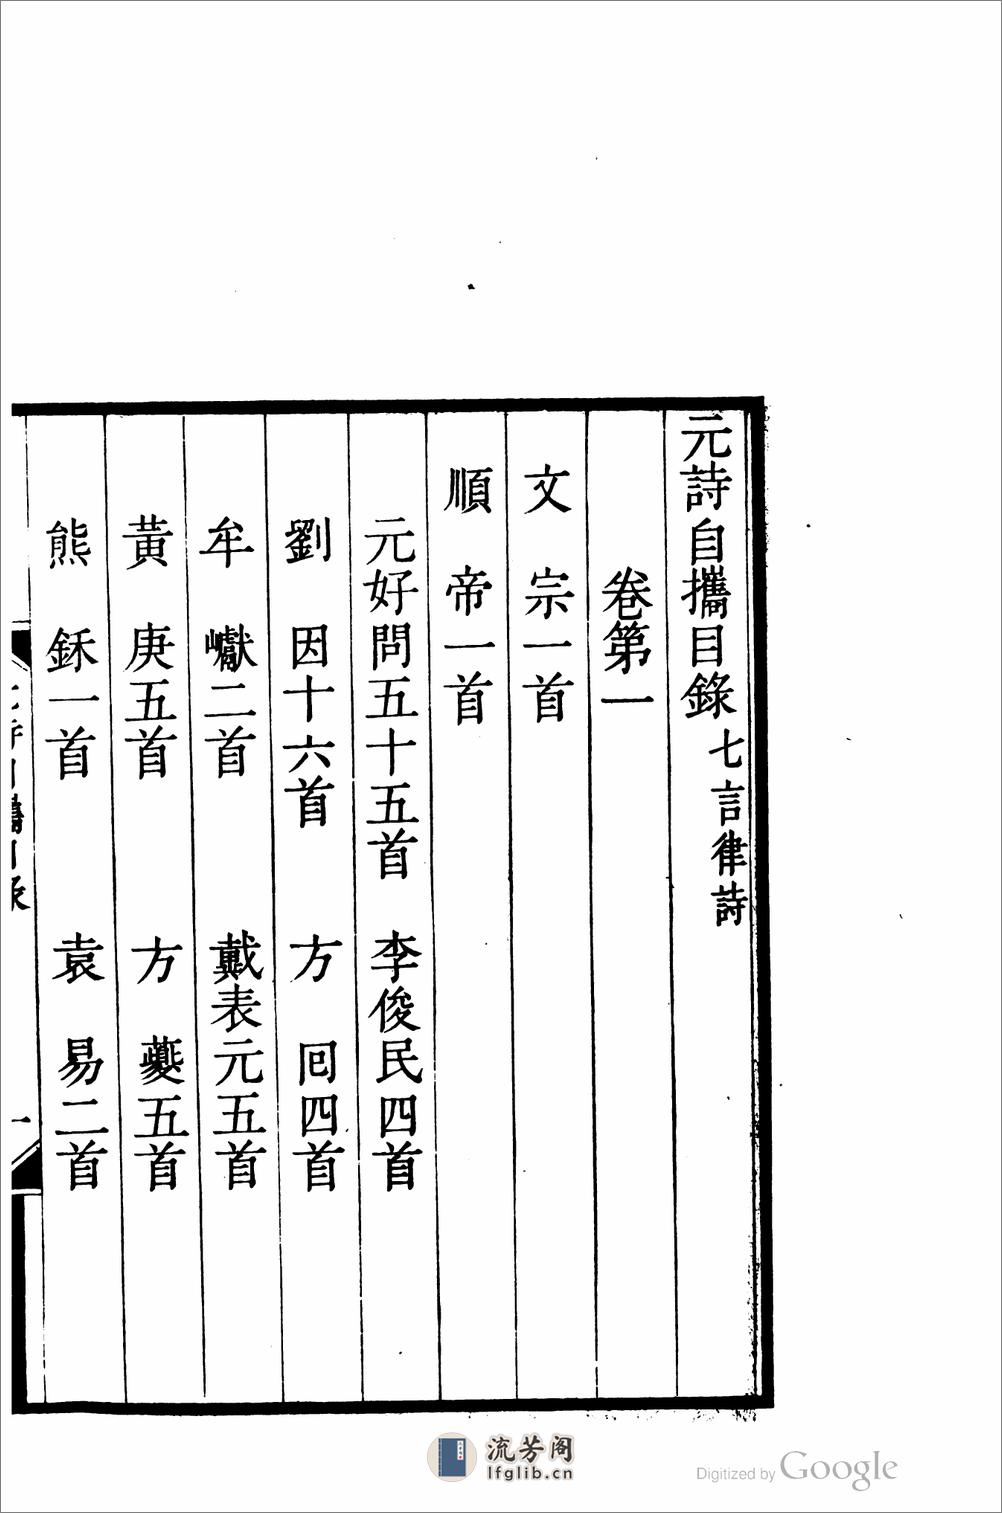 元詩自攜目錄七言律詩
卷第一
文宗一首
順帝一首
元好問五十五首 李俊民四首
劉因十六首 方回四首
牟巘二首 戴表元五首
黃庚五首 方夔五首
熊鉌一首 袁易二首
流芳阁
lfglib.cn
Digitized by Google